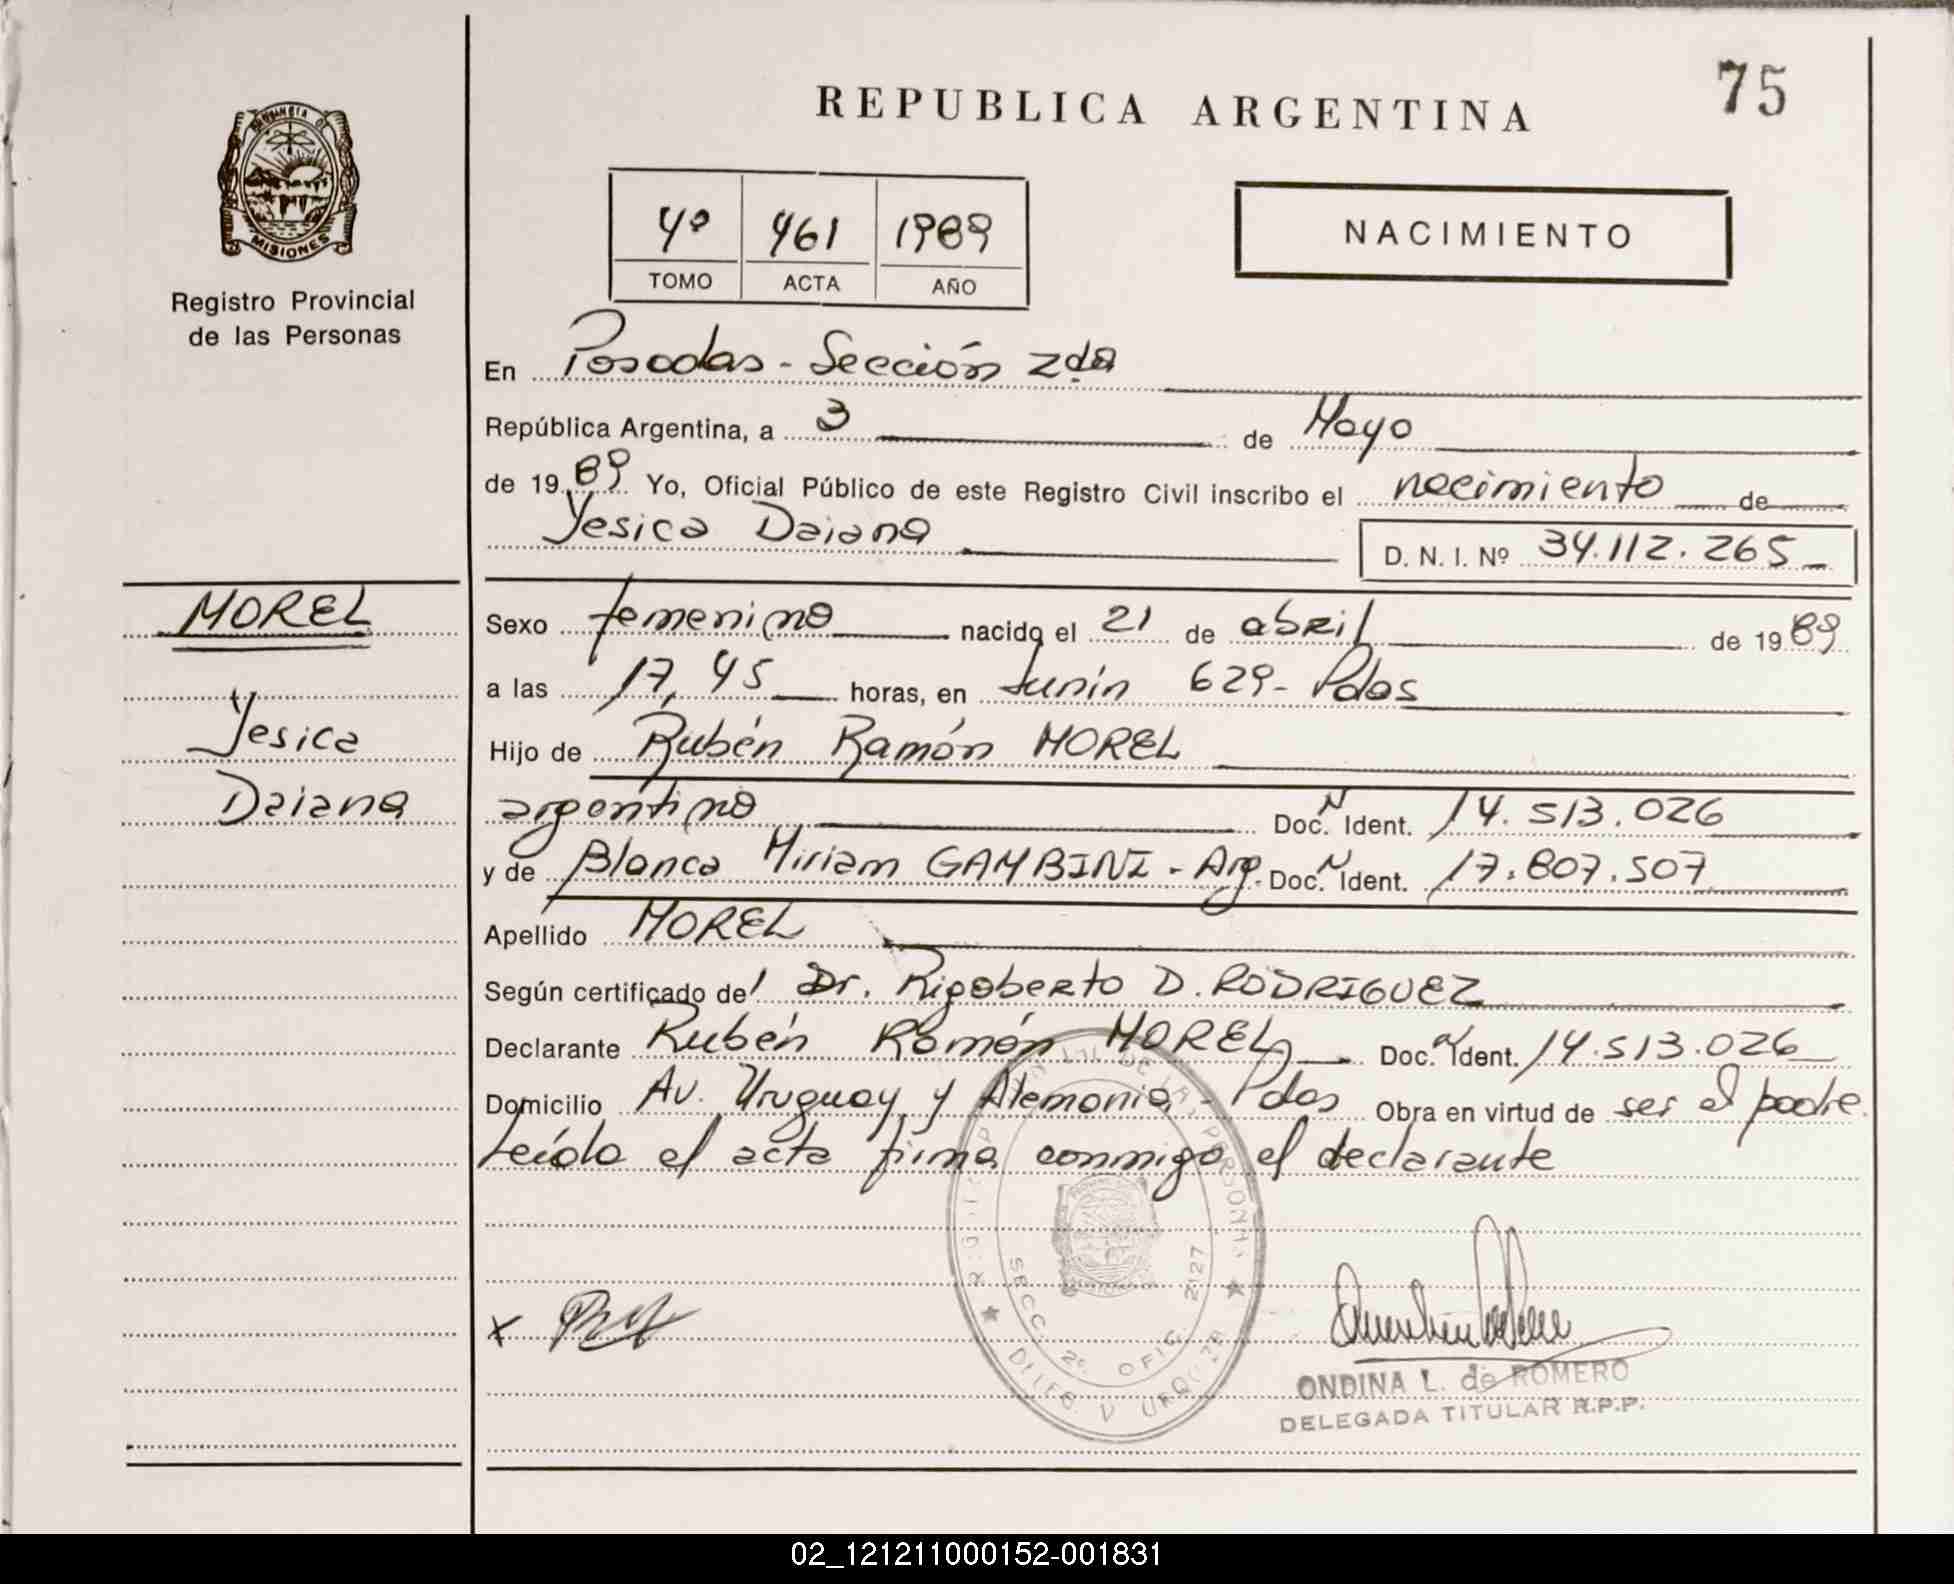 REPUBLICA ARGENTINA
75
PROVINCIA DE
MISIONES
Registro Provincial
de las Personas
4º 461 1989
TOMO ACTA AÑO
NACIMIENTO
En Posadas - Sección 2da
República Argentina, a 3 de Mayo
de 1989 Yo, Oficial Público de este Registro Civil inscribo el nacimiento de
Yesica Daiana D. N. I. Nº 34.112.265
MOREL
Yesica
Daiana
Sexo femenino nacido el 21 de abril de 1989
a las 17,45 horas, en Junín 629 - Pdas
Hijo de Rubén Ramón MOREL
argentino Doc. N Ident. 14.513.026
y de Blanca Miriam GAMBINI - Arg. Doc. N Ident. 17.807.507
Apellido MOREL
Según certificado del Dr. Rigoberto D. RODRIGUEZ
Declarante Rubén Ramón MOREL Doc. N Ident. 14.513.026
Domicilio Av. Uruguay y Alemania - Pdas Obra en virtud de ser el padre
Leída el acta firma conmigo el declarante
SECC. 2º OFIC. 2127
x
ONDINA L. de ROMERO
DELEGADA TITULAR R.P.P.
02_121211000152-001831